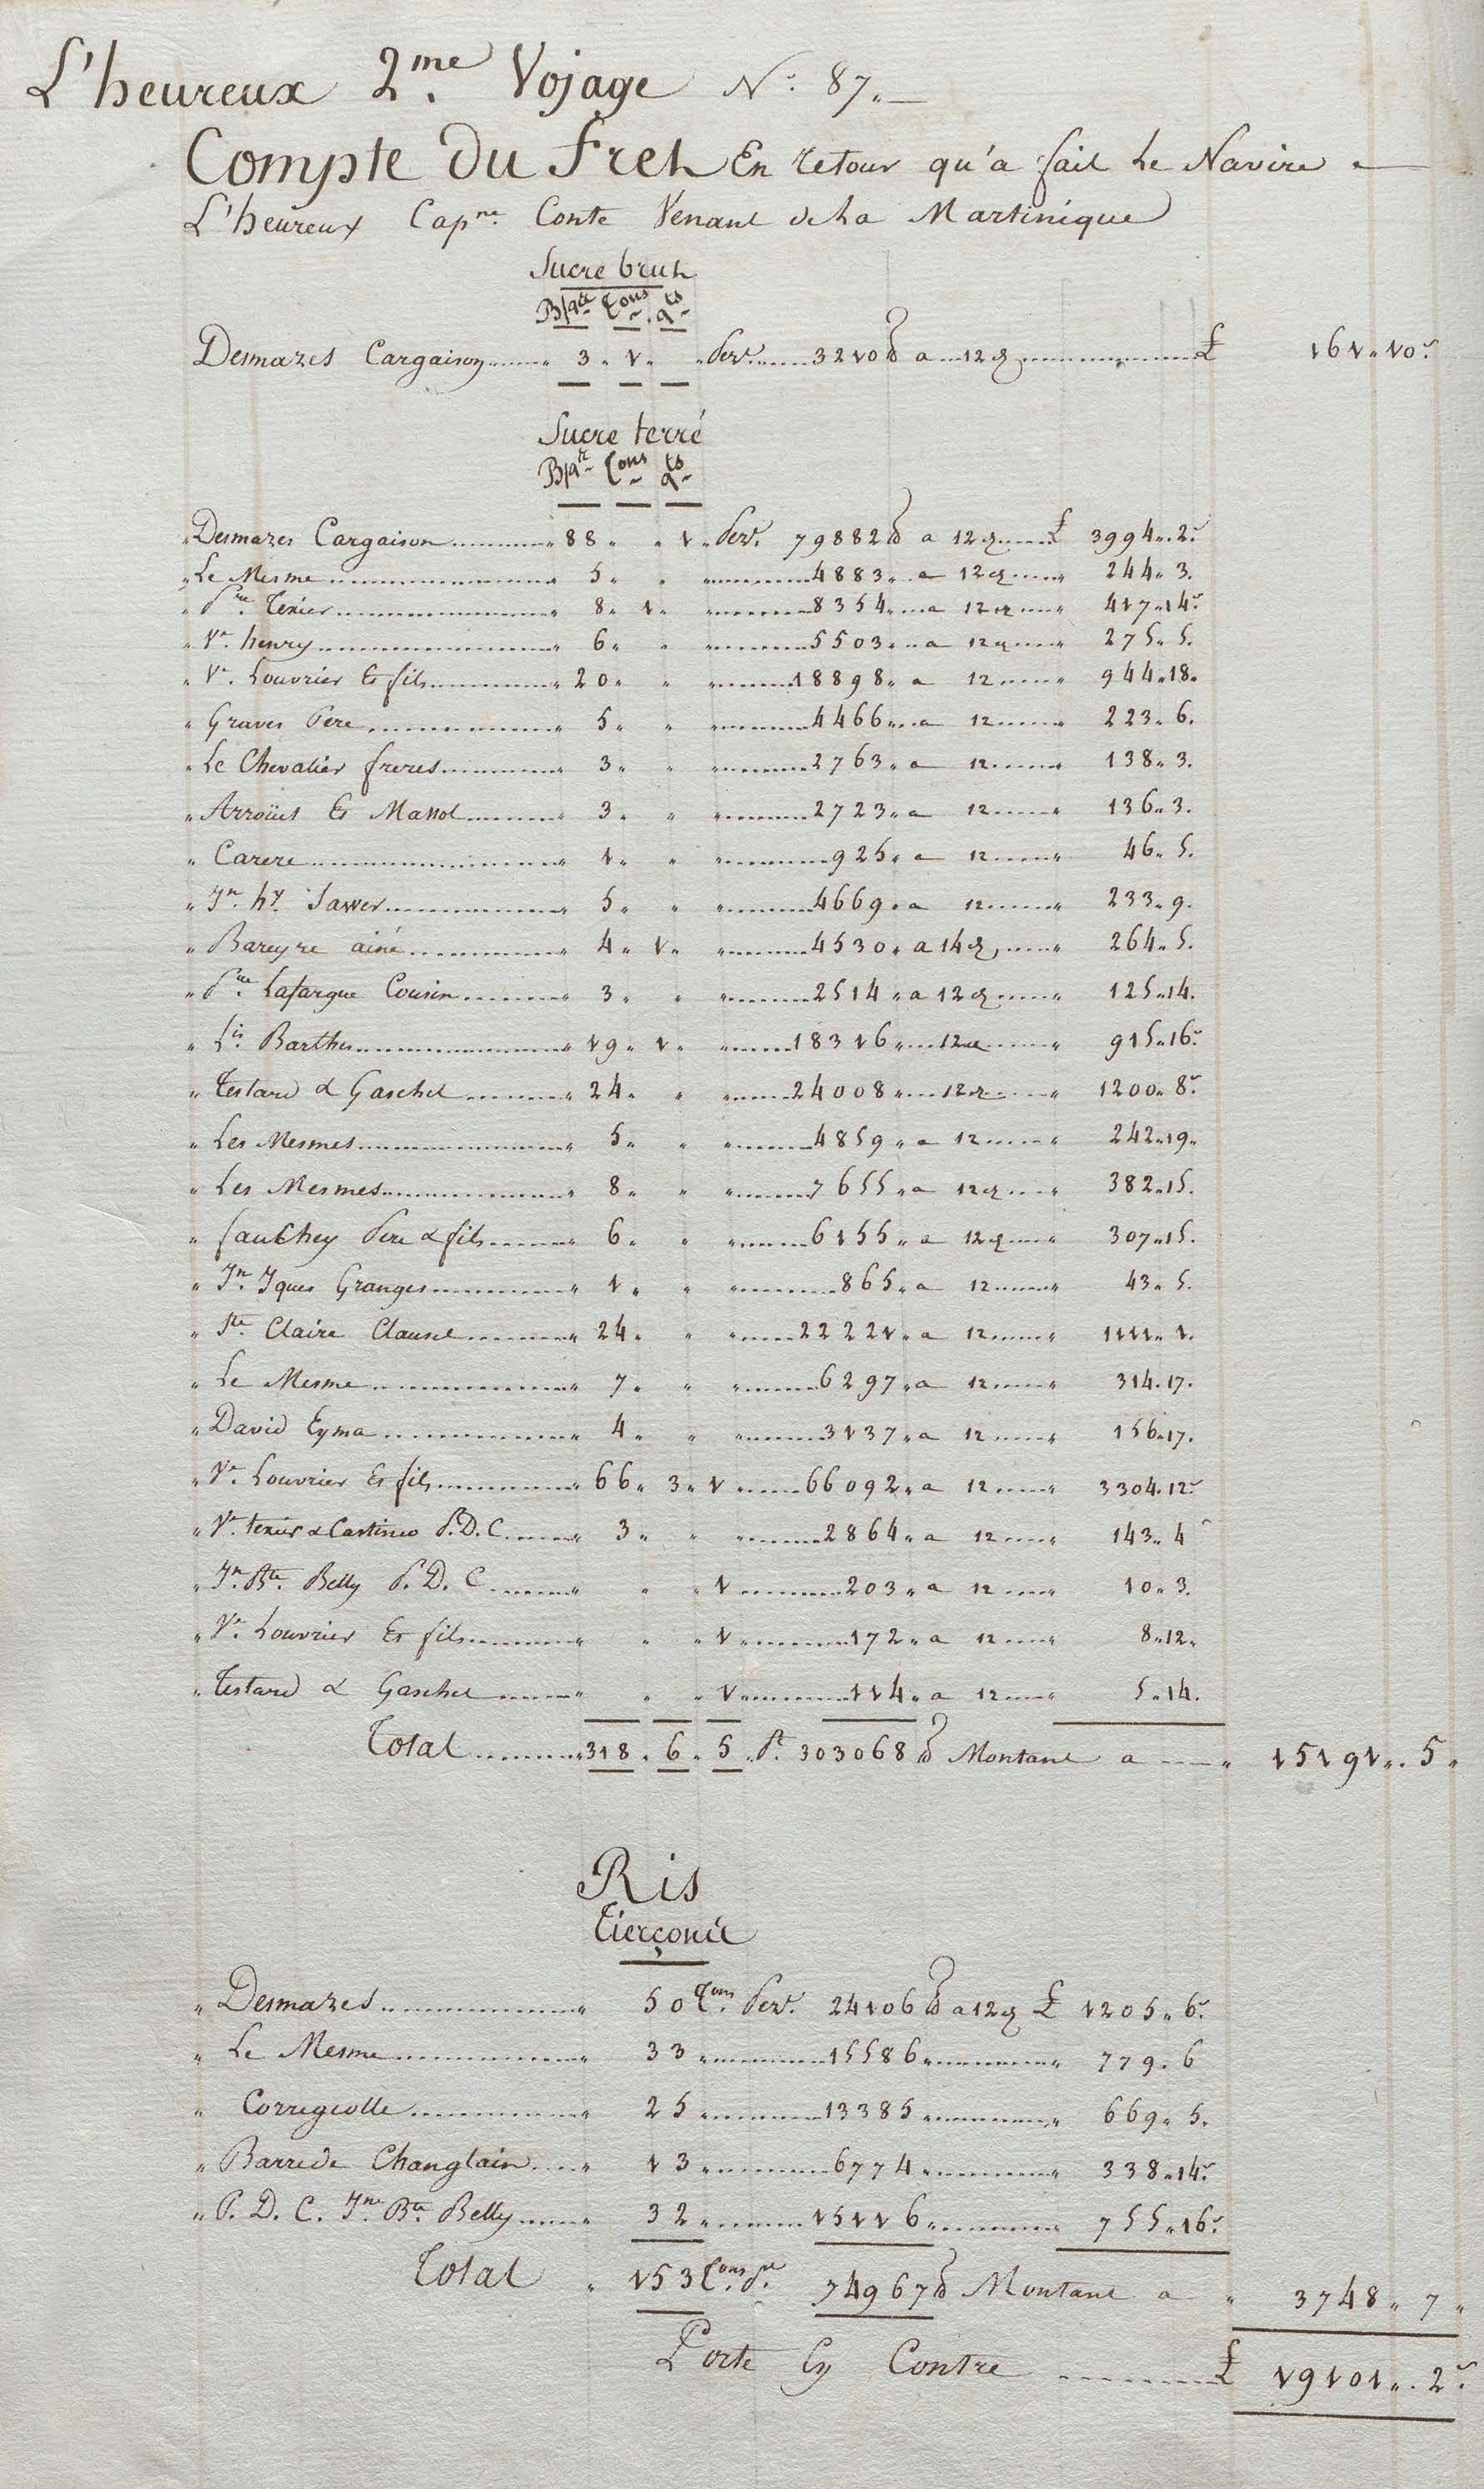 L'heureux 2.me Voyage N.° 87.
Compte Du Fret En retour qu'a fait Le Navire
L'heureux Cap.ne Conte Venant de La Martinique
Sucre brut
B/q.tte T.ons q.ts
Desmazes Cargaison 3 " 1 " " Pez.t 3210 ℔ a 12 ₰ £ 161 " 10.s
Sucre terré
B/q.te T.ons q.ts
" Desmazes Cargaison 88 " " 1 " Pez.t 79882 ℔ a 12 ₰ £ 3994 " 2.s
" Le Mesme 5 " " 4883 " a 12 ₰ " 244 " 3.
" P.re Texier 8 " 1 " 8354 " a 12 ₰ " 417 " 14.s
" V.e henry 6 " " 5503 " a 12 ₰ " 275 " 5.
" V.e Louvrier Et fils 20 " " 18898 " a 12 " 944 " 18 "
" Graves Pere 5 " " 4466 " a 12 " 223 " 6.
" Le Chevalier freres 3 " " 2763 " a 12 " 138 " 3.
" Arroüet Et Massol 3 " " 2723 " a 12 " 136 " 3.
" Carere 1 " " 925 " a 12 " 46 " 5.
" J.n h.y Sawer 5 " " 4669 " a 12 " 233 " 9.
" Bareyre ainé 4 " 1 " 4530 " a 14 ₰ " 264 " 5.
" P.re Lafargue Cousin 3 " " 2514 " a 12 ₰ " 125 " 14.
" L.is Barthes 19 " 1 " 18316 " 12 ₰ " 915 " 16.s
" Testard & Gaschet 24 " " 24008 " 12 ₰ " 1200 " 8.s
" Les Mesmes 5 " " 4859 " a 12 " 242 " 19 "
" Les Mesmes 8 " " 7655 " a 12 ₰ " 382 " 15.
" fauchey Pere & fils 6 " " 6155 " a 12 ₰ " 307 " 15.
" J.n Jques Granges 1 " " 865 " a 12 " 43 " 5.
" S.te Claire Clausel 24 " " 22221 " a 12 " 1111 " 1.
" Le Mesme 7 " " 6297 " a 12 " 314 " 17.
" David Eyma 4 " " 3137 " a 12 " 156 " 17.
" V.e Louvrier Et fils 66 " 3 " 1 66092 " a 12 " 3304 " 12.s
" V.e texier & Castineo P.D.C. 3 " " 2864 " a 12 " 143 " 4
" J.n B.te Belly P.D.C. " " 1 203 " a 12 " 10 " 3.
" V.e Louvrier Et fils " " 1 172 " a 12 " 8 " 12 "
" Testard & Gaschet " " 1 114 " a 12 " 5 " 14.
Total 318 " 6 " 5 " P.t 303068 ℔ Montant a " 15191 " 5 "
Ris
Tierçons
" Desmazes 50 T.ons Pez.t 24106 ℔ a 12 ₰ £ 1205 " 6.s
" Le Mesme 33 15586 " 779 " 6
" Corregeolle 25 13385 " 669 " 5.
" Barrede Changlain 13 6774 " 338 " 14.s
" P.D.C. J.n B.te Belly 32 15116 " 755 " 16.s
Total " 153 T.ons P.t 74967 ℔ Montant a " 3748 " 7 "
Porte Cy Contre £ 19101 " 2.s